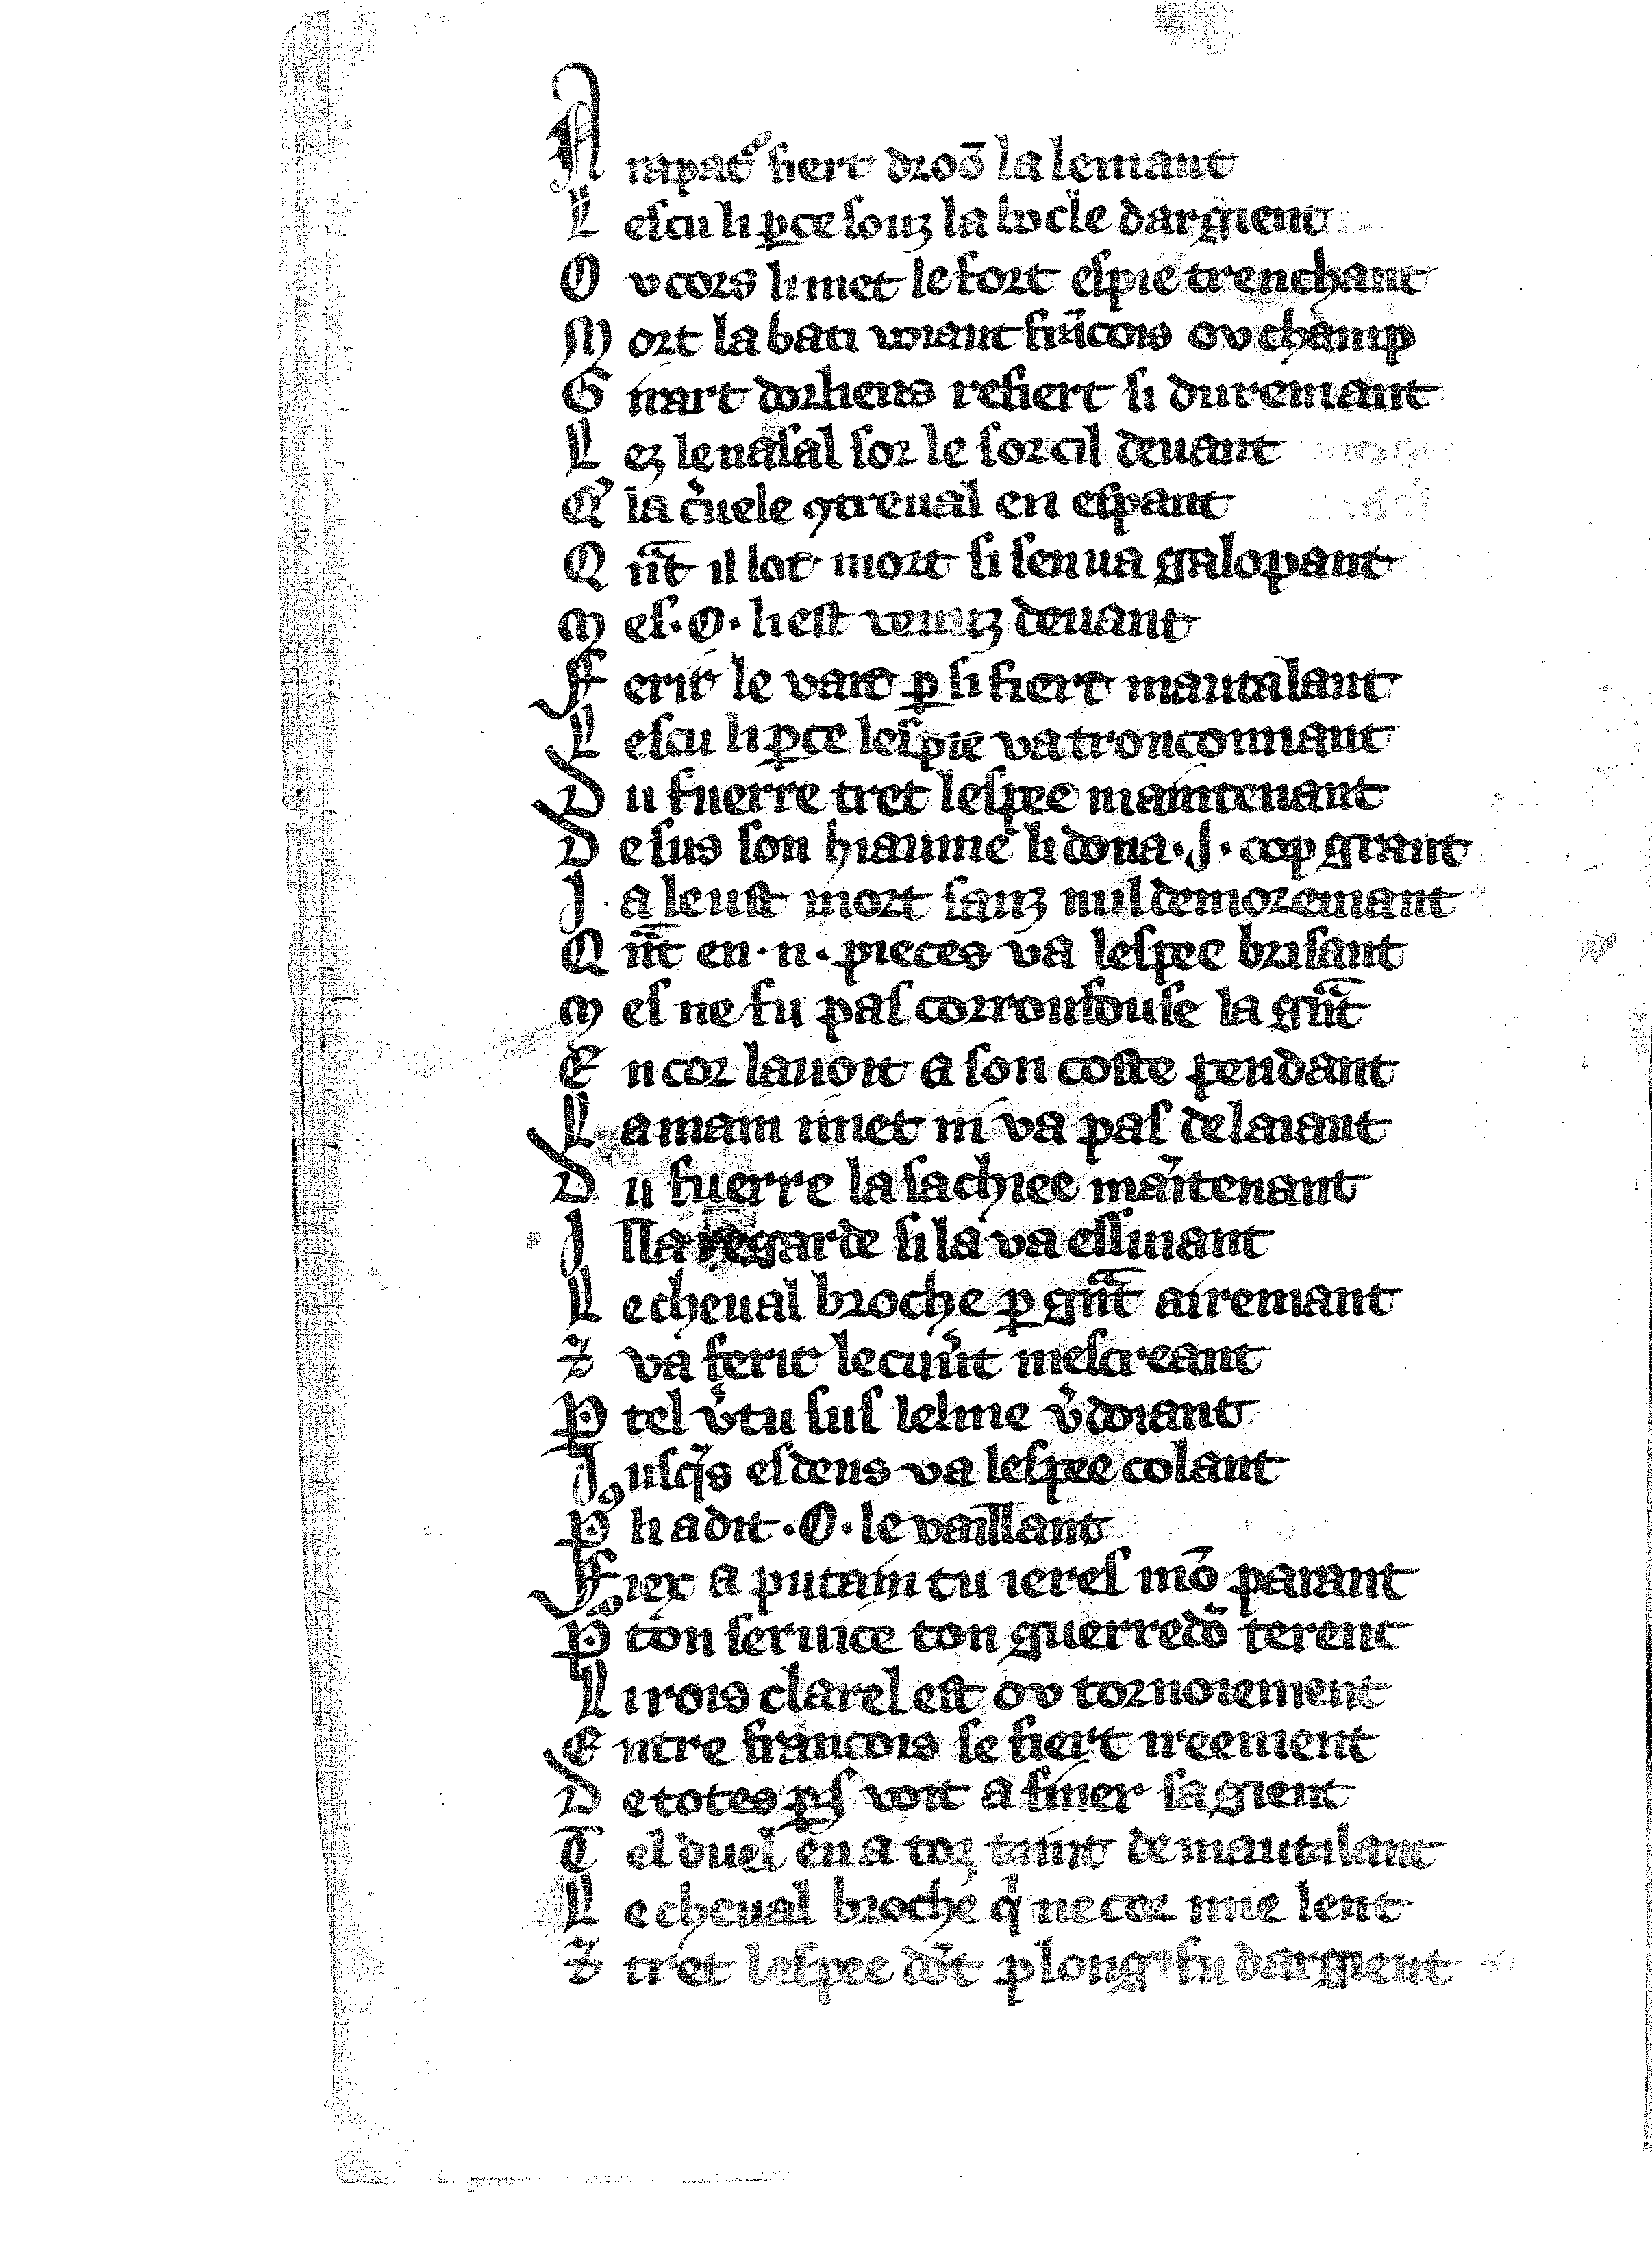 A rapatˀ fiert droō la lemant
L escu li ꝑce souz la bocle dargient
O v cors li met le fort espie trenchant
M ort labati voiant frācois ov champ
G irart dorliens refiert si duremant
L ez le nasal sor le sorcil deuant
Q̉ la c̉uele ꝯtreual en espant
Q n̄t il lot mort si sen ua galopant
M es ·O· li est venuz deuant
F erir le vait ꝑ si fiert mautalant
L escu li ꝑce lespie va tronconnant
D u fuerre tret lespee maintenant
D esus son hiaume li dona ·J· cop grant
J a leust mort sanz nul demoremant
Q n̄t en ·ıı· pieces va lespee brisant
M es ne fu pas corrousouse la gn̄t
E ncor lauoit a son coste pendant
L a main i met ni va pas delaiant
D u fuerre la sachiee māitenant
J l la regarde si la va essuiant
L e cheual broche ꝑ gn̄t airemant
⁊ va ferir le cuiu̓t mescreant
P tel v̓tu sus lelme v̓doiant
J usq̃s es dens va lespee colant
Pꝰ li a dit ·O· le vaillant
F iex a putain tu ieres mō parant
Pᵒ ton seruice ton guerredō te renc
L i rois clarel est ov tornoiement
E ntre francois se fiert ireement
D e totes ꝑs voit a finer sa gient
T el duel en a toz taint de mautalant
L e cheual broche q̇ ne cort mie lent
⁊ tret lespee dōt p long fu dargient